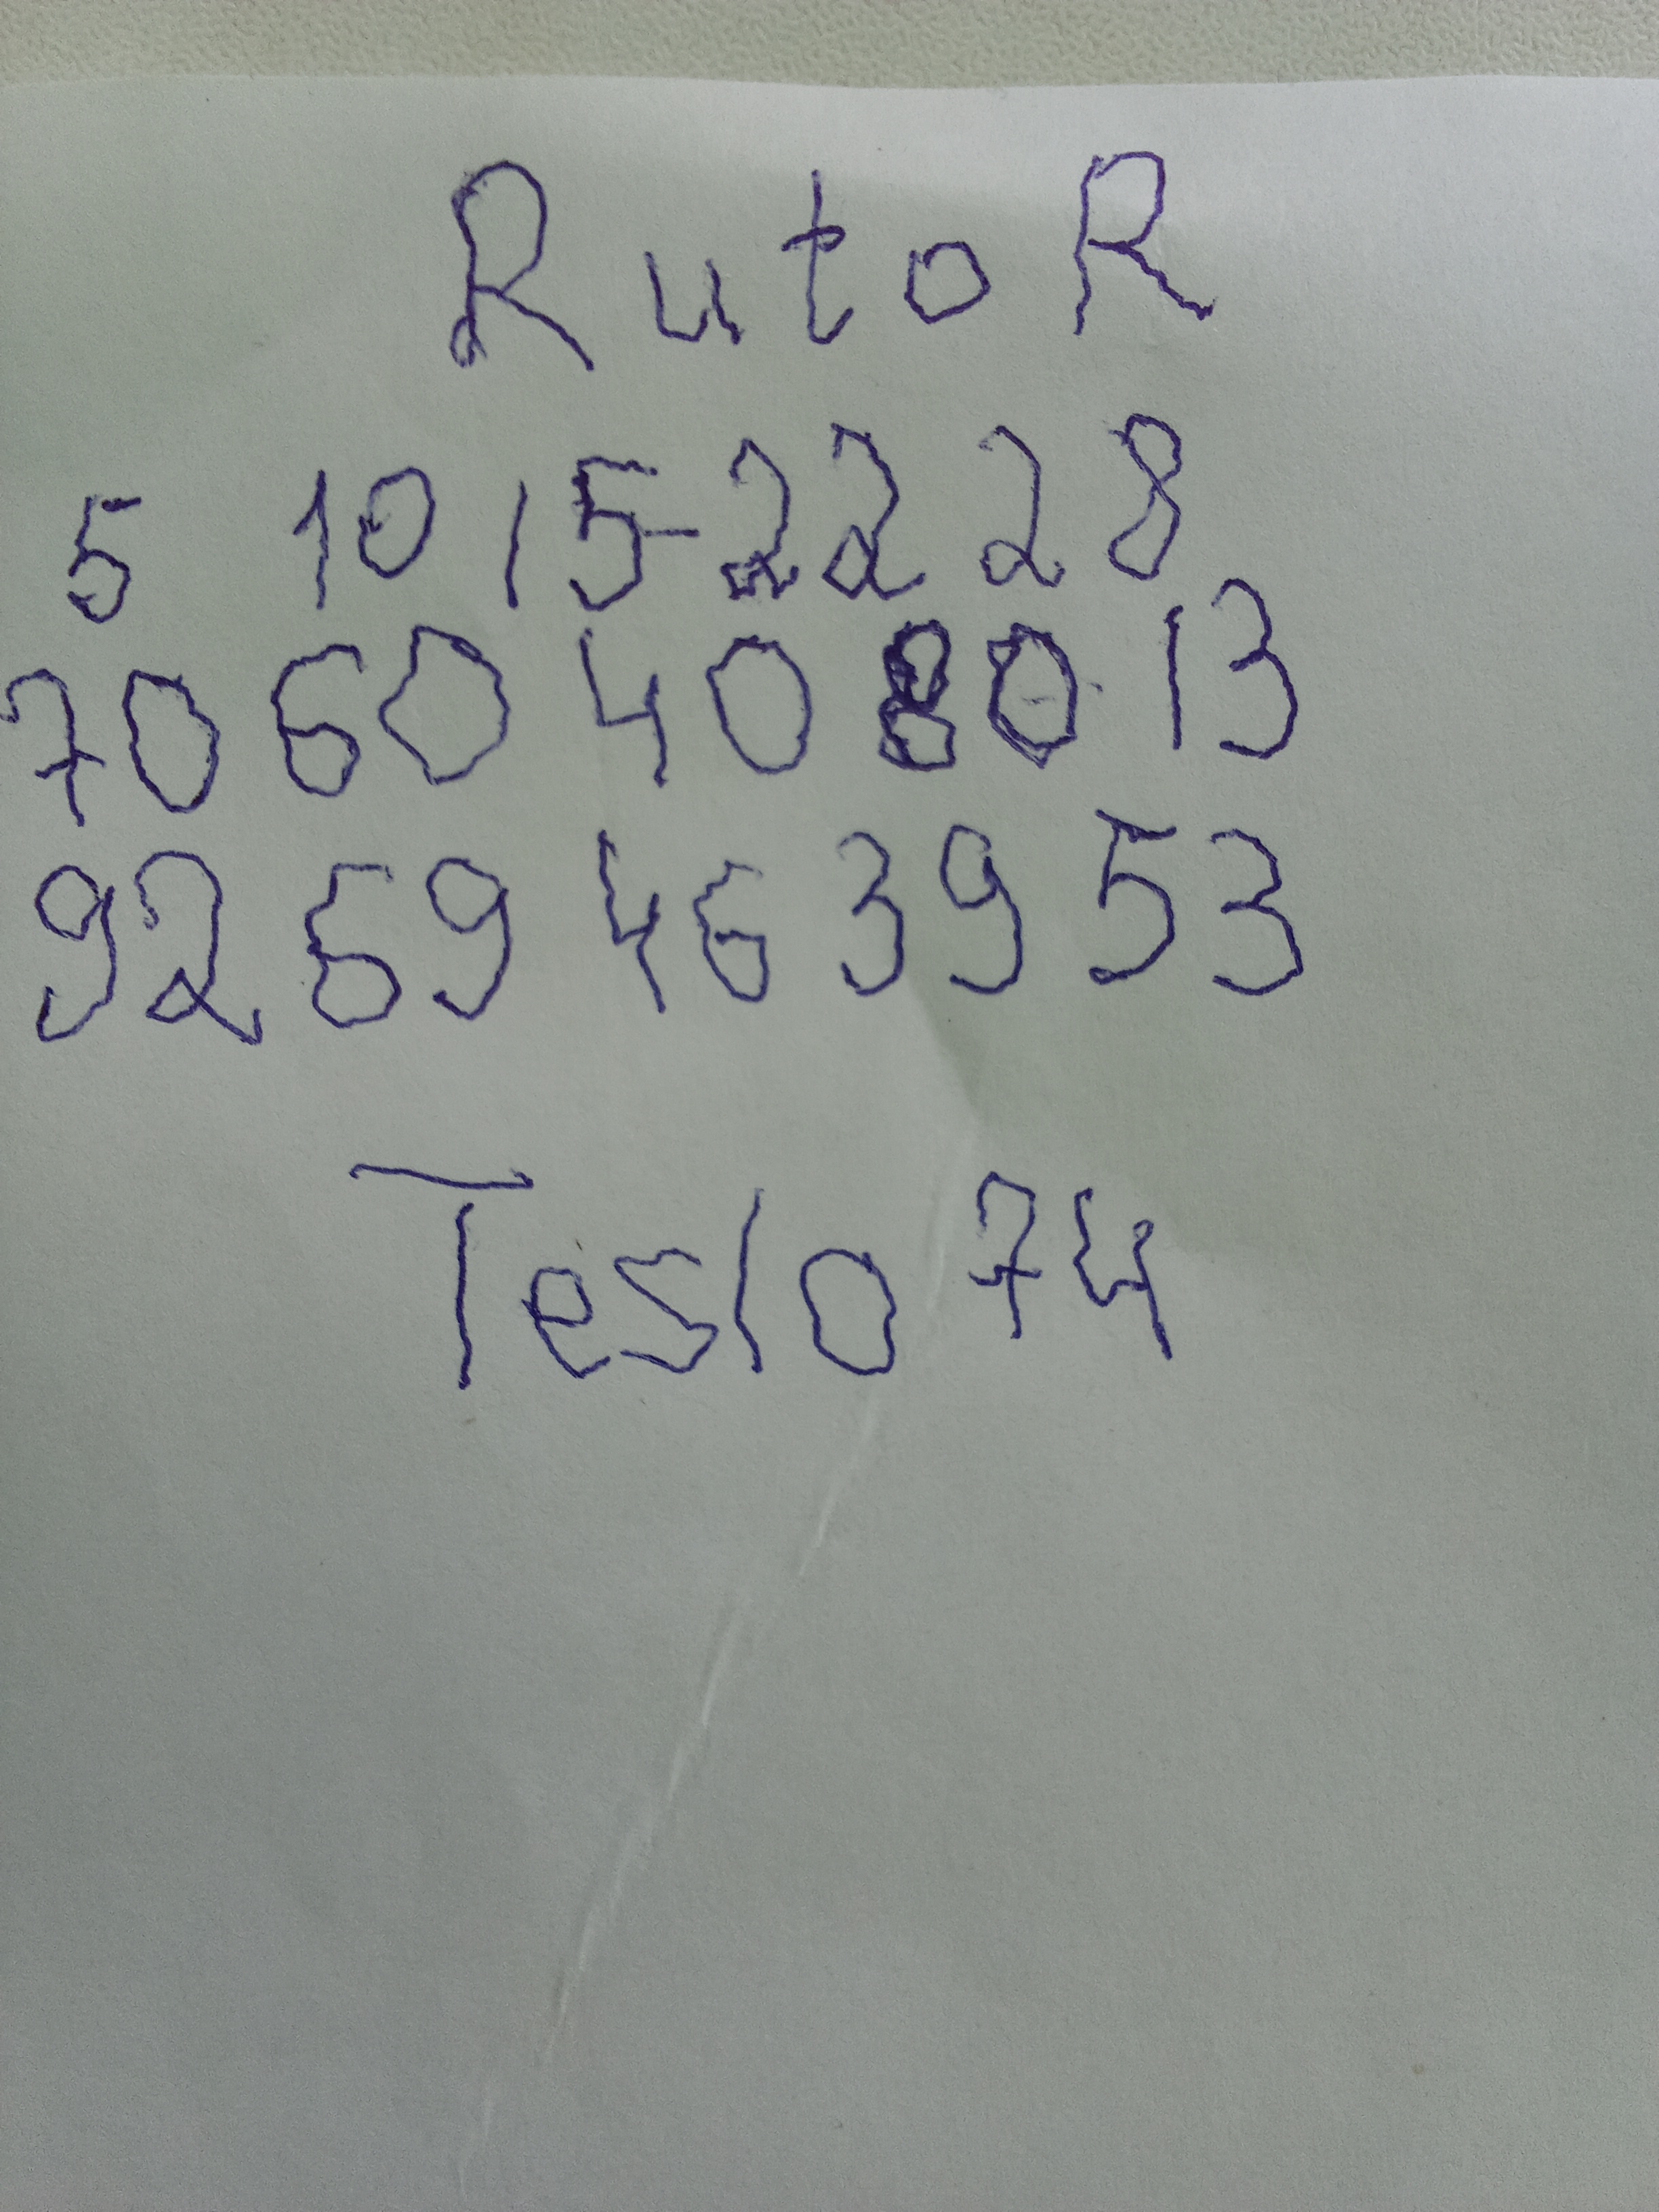 RutoR
5 10 15-22 28
70 60 40 80 13
92 69 46 39 53
Teslo 74